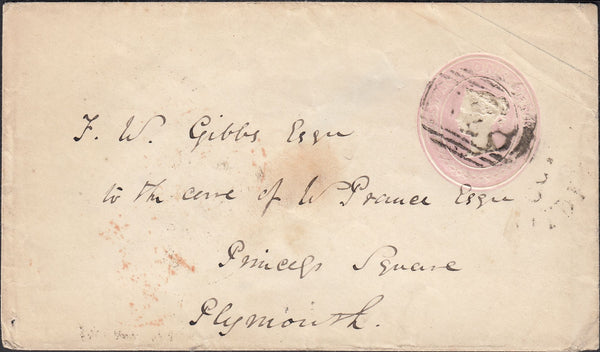 F. W. Gibbs Esqu
to the care of W Prance Esqu
Princess Square
Plymouth.